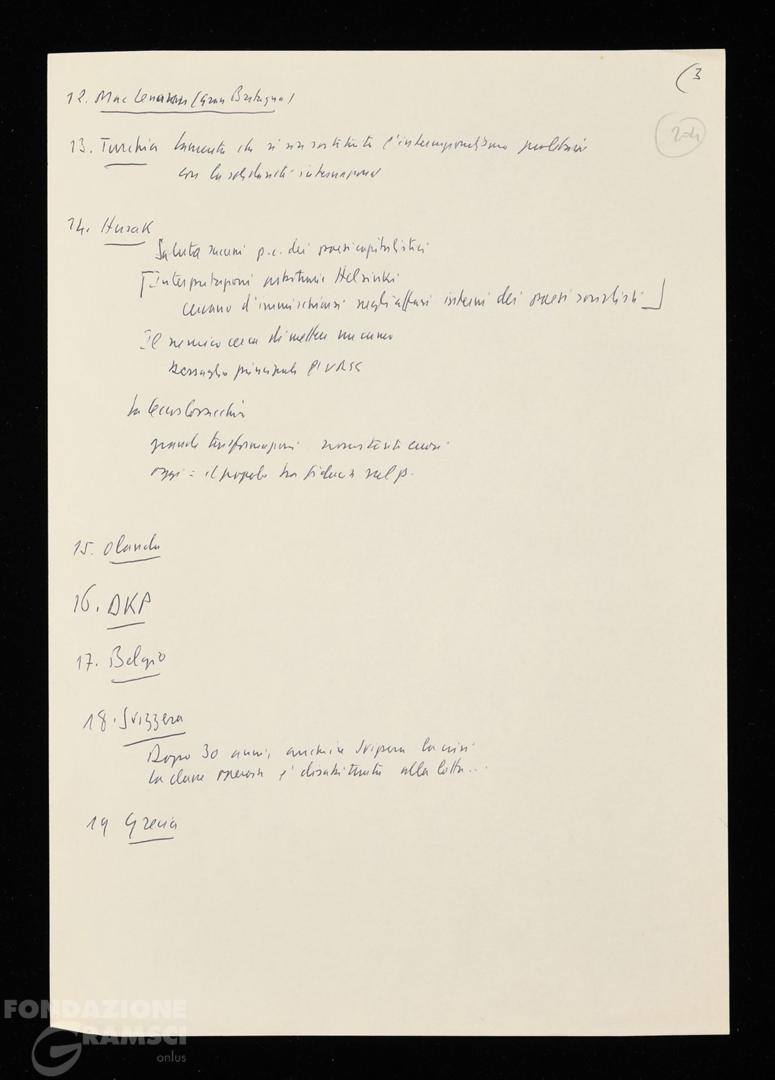 (3
204
12. Mac Lennan (Gran Bretagna)
13. Turchia lamenta che si sia sostituito l'internazionalismo proletario
con la solidarietà internazionale
14. Husak
Saluta alcuni p.c. dei paesi capitalistici
[Interpretazioni arbitrarie Helsinki
cercano d'immischiarsi negli affari interni dei paesi socialisti]
Il nemico cerca di mettere
Bersaglio principale l'URSS
In Cecoslovacchia
grandi trasformazioni nonostante
oggi = il popolo ha fiducia nel p.
15. Olanda
16. DKP
17. Belgio
18. Svizzera
Dopo 30 anni, anche in Svizzera la crisi
la classe operaia è disabituata alla lotta...
19 Grecia
FONDAZIONE
GRAMSCI
onlus